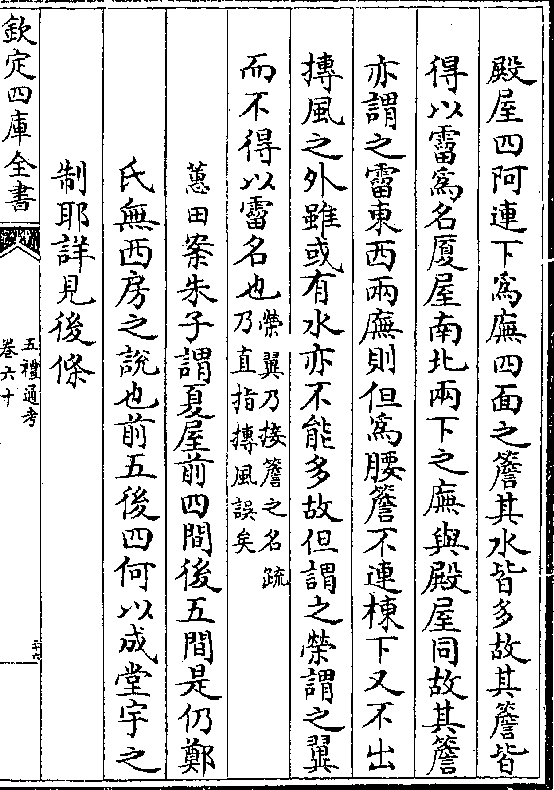 殿屋四阿連下爲廡四面之簷其水皆多故其簷皆
得以霤爲名廈屋南北兩下之廡與殿屋同故其簷
亦謂之霤東西兩廡則但爲腰簷不連棟下又不出
摶風之外雖或有水亦不能多故但謂之榮謂之翼
而不得以霤名也榮翼乃接簷之名疏乃直指摶風誤矣
蕙田案朱子謂夏屋前四間後五間是仍鄭
氏無西房之說也前五後四何以成堂宇之
制耶詳見後條
欽定四庫全書
五禮通考
卷六十